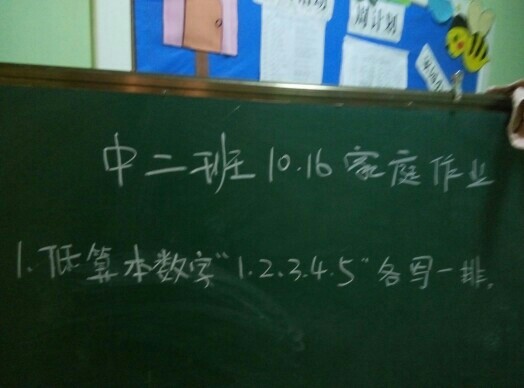 周计划
中二班 10.16 家庭作业
1.算本数字"1.2.3.4.5"各写一排。